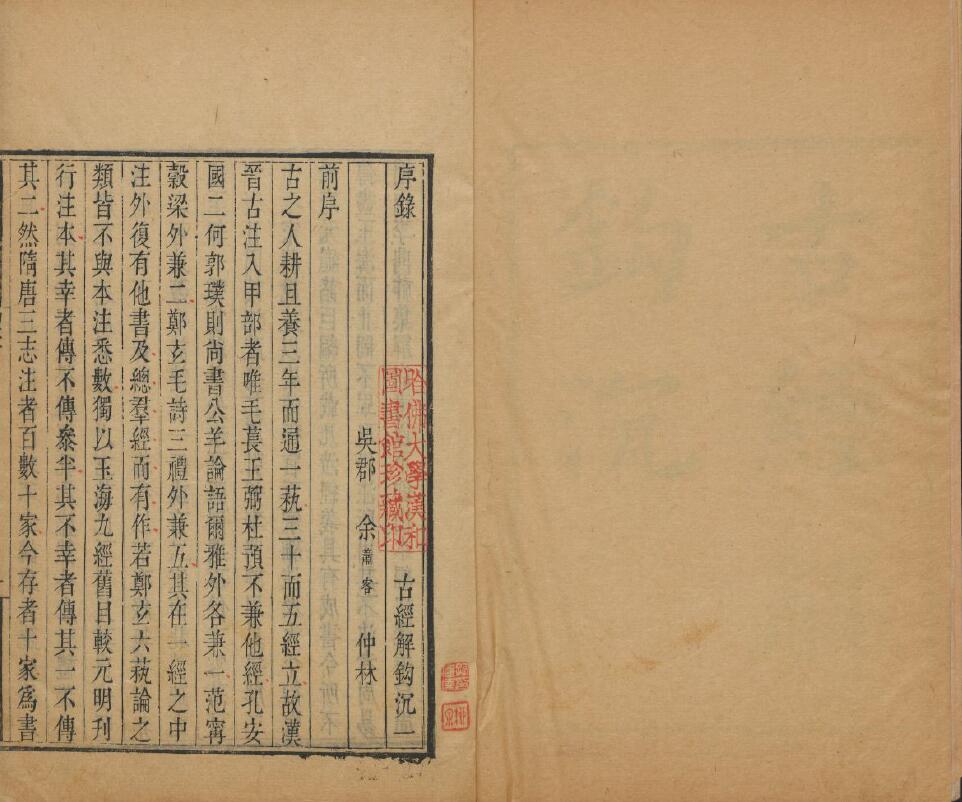 序錄 古經解鈎沉一
吳郡 余蕭客 仲林
前序
古之人耕且養三年而通一蓺三十而五經立故漢
晉古注入甲部者唯毛萇王弼杜預不兼他經孔安
國二何郭璞則尙書公羊論語爾雅外各兼一范甯
穀梁外兼二鄭玄毛詩三禮外兼五其在一經之中
注外復有他書及總羣經而有作若鄭玄六蓺論之
類皆不與本注悉數獨以玉海九經舊目較元明刊
行注本其幸者傳不傳叅半其不幸者傳其一不傳
其二然隋唐三志注者百數十家今存者十家爲書
哈佛大學漢和
圖書館珍藏印